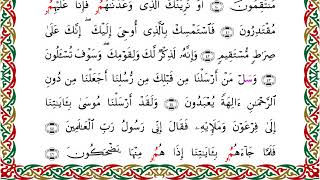 مُّنتَقِمُونَ ۝ أَوْ نُرِيَنَّكَ ٱلَّذِى وَعَدْنَـٰهُمُۥ فَإِنَّا عَلَيْهِمُۥ
مُّقْتَدِرُونَ ۝ فَٱسْتَمْسِكْ بِٱلَّذِىٓ أُوحِىَ إِلَيْكَ ۖ إِنَّكَ عَلَىٰ
صِرَٰطٍ مُّسْتَقِيمٍ ۝ وَإِنَّهُۥ لَذِكْرٌ لَّكَ وَلِقَوْمِكَ ۖ وَسَوْفَ تُسْـَٔلُونَ
۝ وَسَلْ مَنْ أَرْسَلْنَا مِن قَبْلِكَ مِن رُّسُلِنَآ أَجَعَلْنَا مِن دُونِ
ٱلرَّحْمَـٰنِ ءَالِهَةً يُعْبَدُونَ ۝ وَلَقَدْ أَرْسَلْنَا مُوسَىٰ بِـَٔايَـٰتِنَآ
إِلَىٰ فِرْعَوْنَ وَمَلَإِي۟هِۦ فَقَالَ إِنِّى رَسُولُ رَبِّ ٱلْعَـٰلَمِينَ ۝
فَلَمَّا جَآءَهُمُۥ بِـَٔايَـٰتِنَآ إِذَا هُمُۥ مِّنْهَا يَضْحَكُونَ ۝